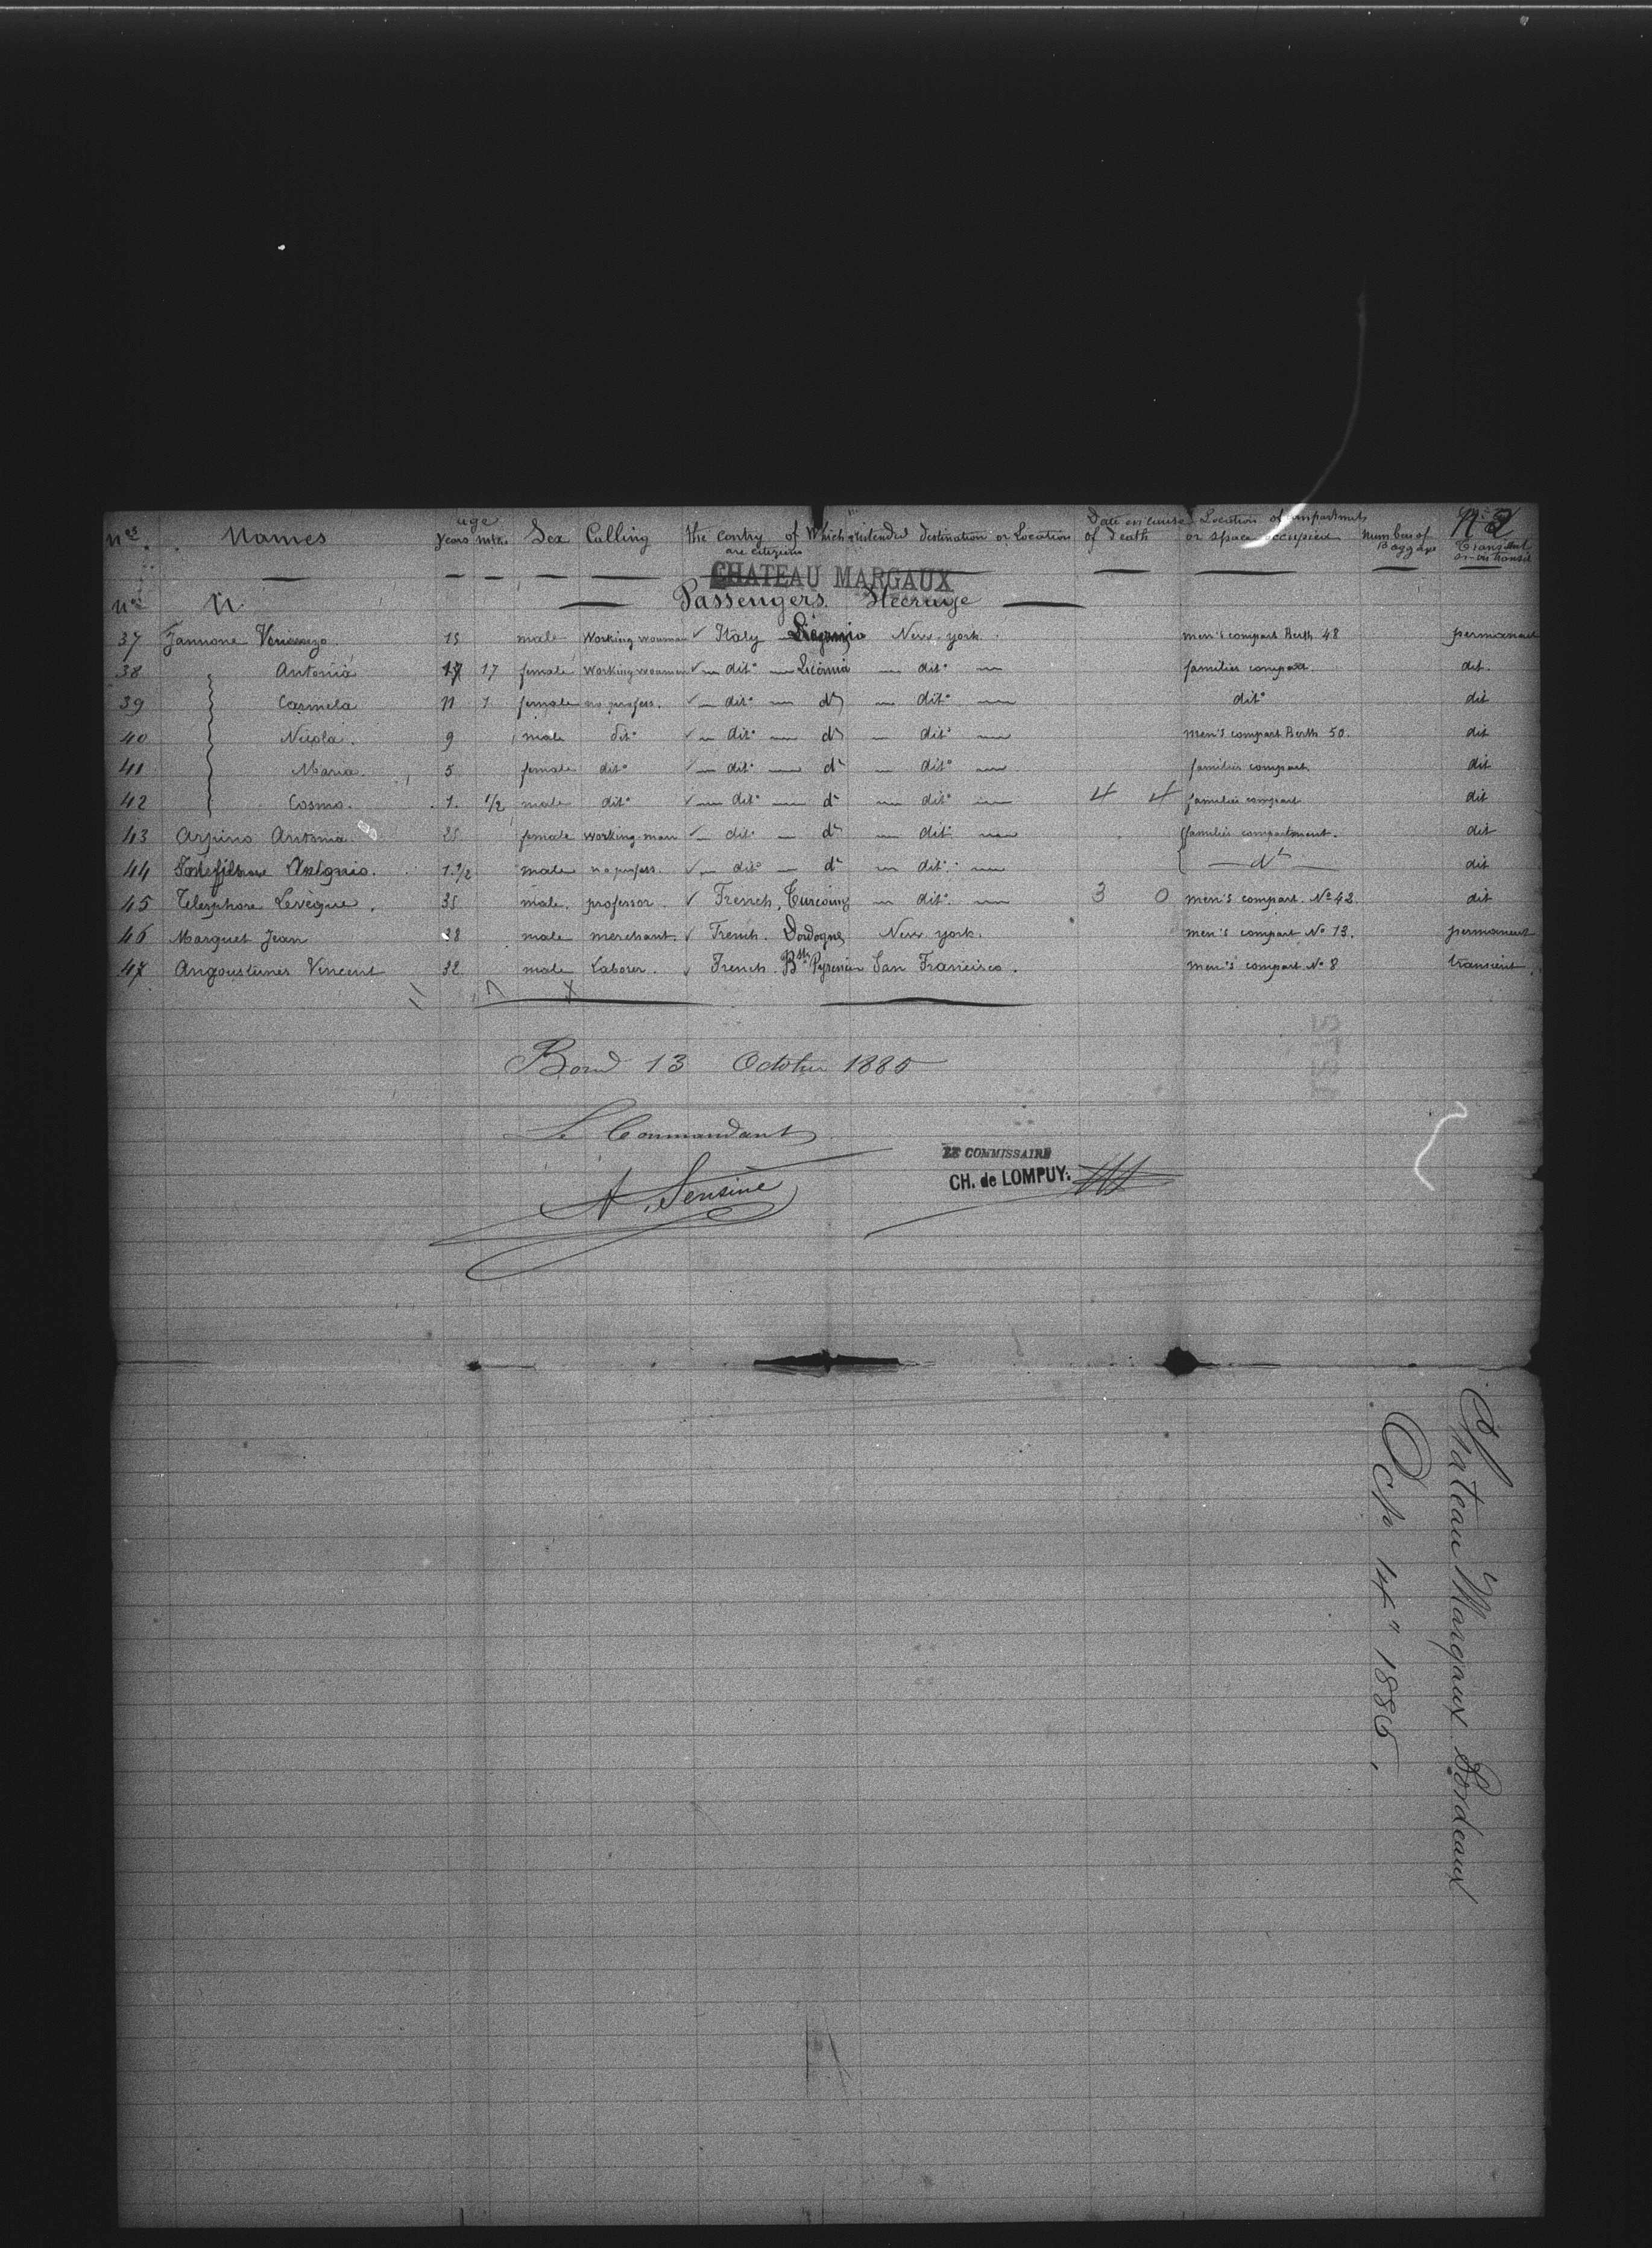 Nos Names age years mths Sex Calling the contry of Which are citizens intended destination or Location Date en cause of death Location of compartments or space occupied number of Baggage
CHATEAU MARGAUX
Nos N. Passengers Steerage
37 Jannone Vincenzo. 15 male Working wouman Italy New-york. men's compart Berth 48 permanent
38 Antonia 17 17 female working wouman dito Licornia dito families compart. dit.
39 Carmela 11 female no profess. dito do dito dito dit
40 Nicola. 9 male dito dito do dito men's compart Berth 50. dit
41 Maria. 5 female dito dito do dito families compart. dit
42 Cosmo. 1. 1/2 male dito dito do dito 4 4 families compart dit
43 Arpino Antonia. 25 female working-man dito do dito families compartment. dit
44 1.1/2 male no profess. dito do dito do dit
45 Telesphore Levèque. 35 male. professor. French. Turcoing dito 3 0 men's compart. No 42. dit
46 Marquet Jean 28 male merchant. French. Dordogne New york. men's compart No 13. permanent
47 Angoustures Vincent 32 male Laborer. French. Bses Pyrenées San Francisco. men's compart No 8 transient.
Bord 13 October 1885
Le Commandant
A. Sensine
LE COMMISSAIRE
CH. de LOMPUY.
Chateau Margaux Bordeaux
Octo 14" 1885,